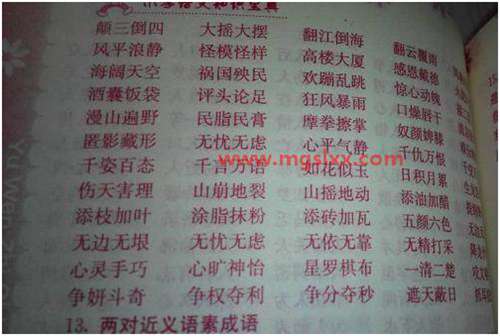 小学语文知识宝典
颠三倒四 大摇大摆 翻江倒海 翻云覆雨
风平浪静 怪模怪样 高楼大厦 感恩戴德
海阔天空 祸国殃民 欢蹦乱跳 惊心动魄
酒囊饭袋 评头论足 狂风暴雨 口燥唇干
漫山遍野 民脂民膏 摩拳擦掌 奴颜婢膝
匿影藏形 无忧无虑 心平气静 千仇万恨
www.mgslxx.com
千姿百态 千言万语 如花似玉 日积月累
伤天害理 山崩地裂 山摇地动 添油加醋
添枝加叶 涂脂抹粉 添砖加瓦 五颜六色
无边无垠 无忧无虑 无依无靠 无精打采
心灵手巧 心旷神怡 星罗棋布 一清二楚
争妍斗奇 争权夺利 争分夺秒 遮天蔽日
13. 两对近义语素成语